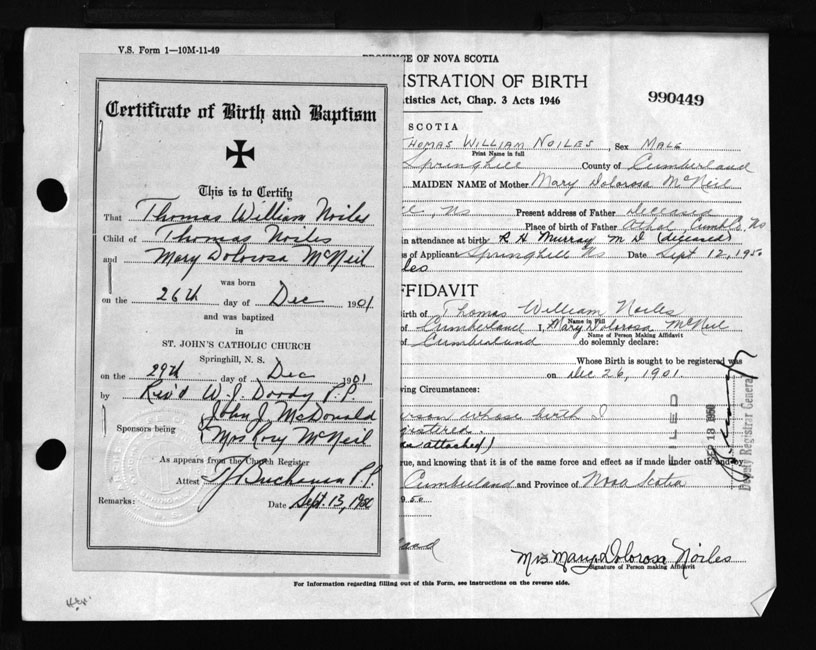 V.S. Form 1—10M-11-49
Certificate of Birth and Baptism
This is to Certify
That Thomas William Noiles
Child of Thomas Noiles
and Mary Dolorosa McNeil
was born
on the 26th day of Dec 1901
and was baptized
in
ST. JOHN'S CATHOLIC CHURCH
Springhill, N. S.
on the 29th day of Dec 1901
by Rev'd W. J. Doody P.P.
Sponsors being John J. McDonald
Mrs Rory McNeil
As appears from the Church Register
Attest Buchanan P.P.
Remarks: Date Sept. 13, 1950
PROVINCE OF NOVA SCOTIA
ISTRATION OF BIRTH
tistics Act, Chap. 3 Acts 1946
990449
SCOTIA
HOMAS WILLIAM NOILES, Sex MALE
Print Name in full
Springhill County of Cumberland
MAIDEN NAME of Mother Mary Dolorosa McNeil
NS Present address of Father deceased
Place of birth of Father Athol Cumb Co. NS
in attendance at birth R H Murray M D (deceased)
s of Applicant Springhill NS Date Sept 12, 1950
les
FFIDAVIT
Birth of Thomas William Noiles
Name in Full
of Cumberland I, Mary Dolorosa McNeil
Name of Person Making Affidavit
of Cumberland do solemnly declare:
Whose Birth is sought to be registered was
on Dec 26, 1901
ing Circumstances:
erson whose birth I
gistered.
attached)
FILED
SEP 13 1950
Deputy Registrar General
rue, and knowing that it is of the same force and effect as if made under oath and by
Cumberland and Province of Nova Scotia
1950
Mrs Mary Dolorosa Noiles
Signature of Person making Affidavit
For Information regarding filling out of this Form, see instructions on the reverse side.